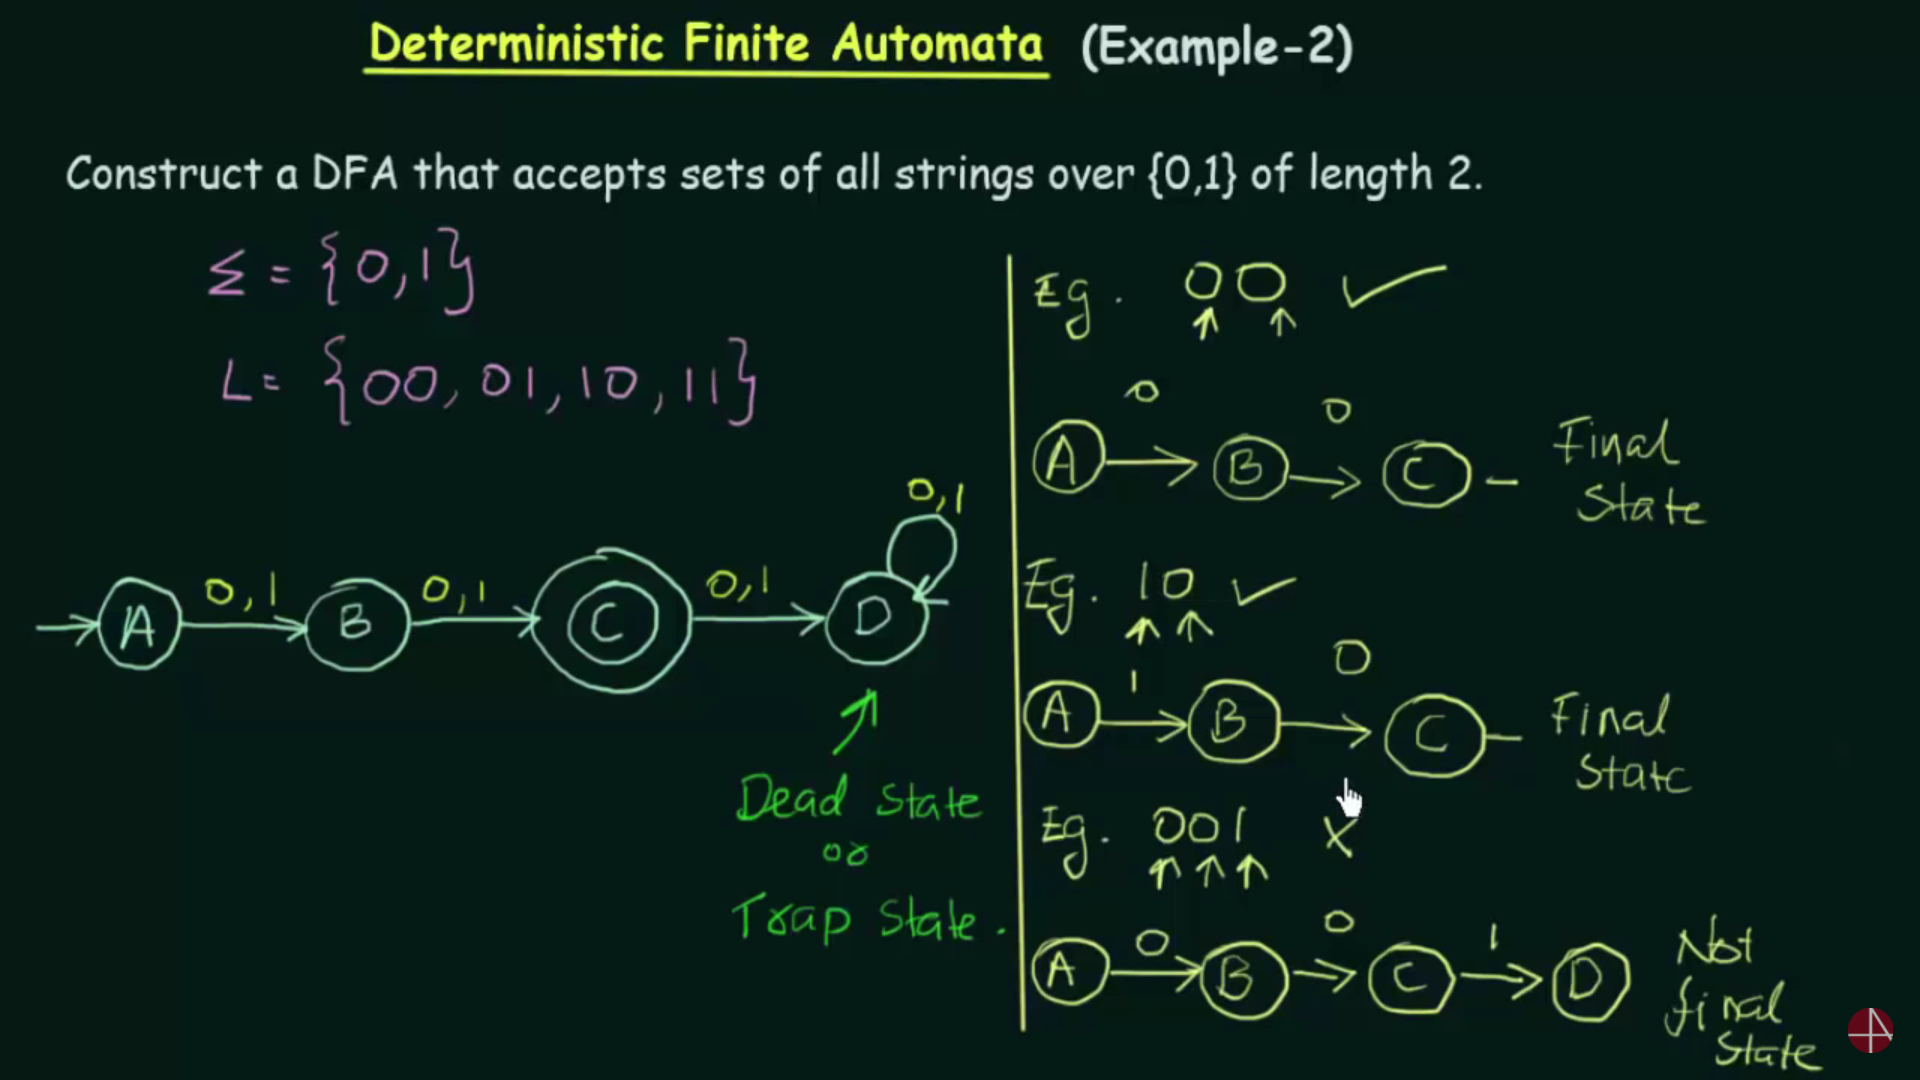 Deterministic Finite Automata (Example-2)
Construct a DFA that accepts sets of all strings over {0,1} of length 2.
Σ = {0,1}
L = {00, 01, 10, 11}
0,1
A 0,1 B 0,1 C 0,1 D
Dead State
or
Trap State.
Eg. 00 ✓
0 0
A B C - Final
State
Eg. 10 ✓
1 0
A B C - Final
State
Eg. 001 x
0 0 1
A B C D Not
final
State